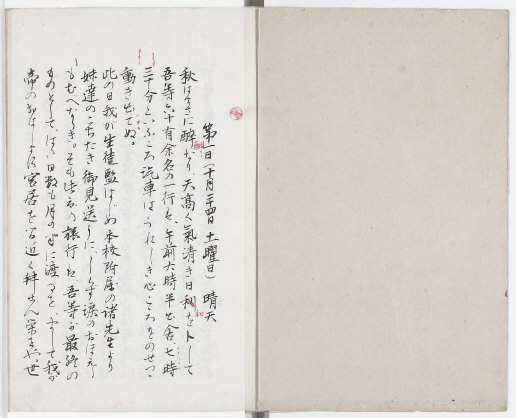 第一日(十月二十四日 土曜日) 晴天
秋はまさに酣なり、天高く氣清き日和をトして
吾等六十有余名の一行は、午前六時半出舎、七時
三十分といふころ汽車はうれしき心こころをのせつゝ
動き出でぬ。
此の日我が生徒監はじめ本校附属の諸先生より
妹達のこちたき御見送りに、しらず涙のおぼえ
もむべなるき。そも此の旅行は、吾等が最終の
ものとして、はた日数も月の半に渡るを、まして我が
帝のおはします宮居を間近く拝せん栄をや。世